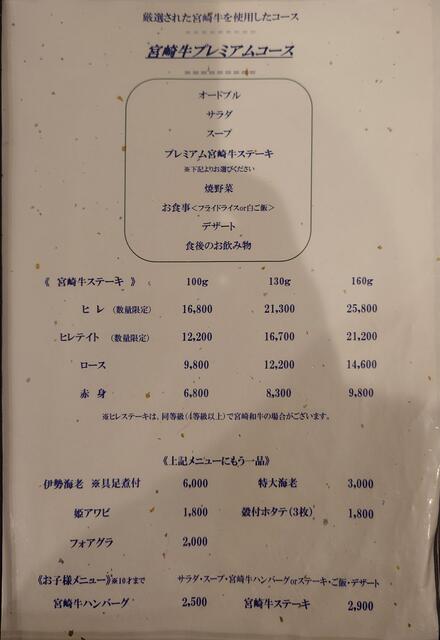 厳選された宮崎牛を使用したコース
宮崎牛プレミアムコース
オードブル
サラダ
スープ
プレミアム宮崎牛ステーキ
※下記よりお選びください
焼野菜
お食事<フライドライスor白ご飯>
デザート
食後のお飲み物
《 宮崎牛ステーキ 》 100g 130g 160g
ヒレ (数量限定) 16,800 21,300 25,800
ヒレテイト (数量限定) 12,200 16,700 21,200
ロース 9,800 12,200 14,600
赤身 6,800 8,300 9,800
※ヒレステーキは、同等級(4等級以上)で宮崎和牛の場合がございます。
《上記メニューにもう一品》
伊勢海老 ※具足煮付 6,000 特大海老 3,000
姫アワビ 1,800 殻付ホタテ(3枚) 1,800
フォアグラ 2,000
《お子様メニュー》※10才まで サラダ・スープ・宮崎牛ハンバーグorステーキ・ご飯・デザート
宮崎牛ハンバーグ 2,500 宮崎牛ステーキ 2,900